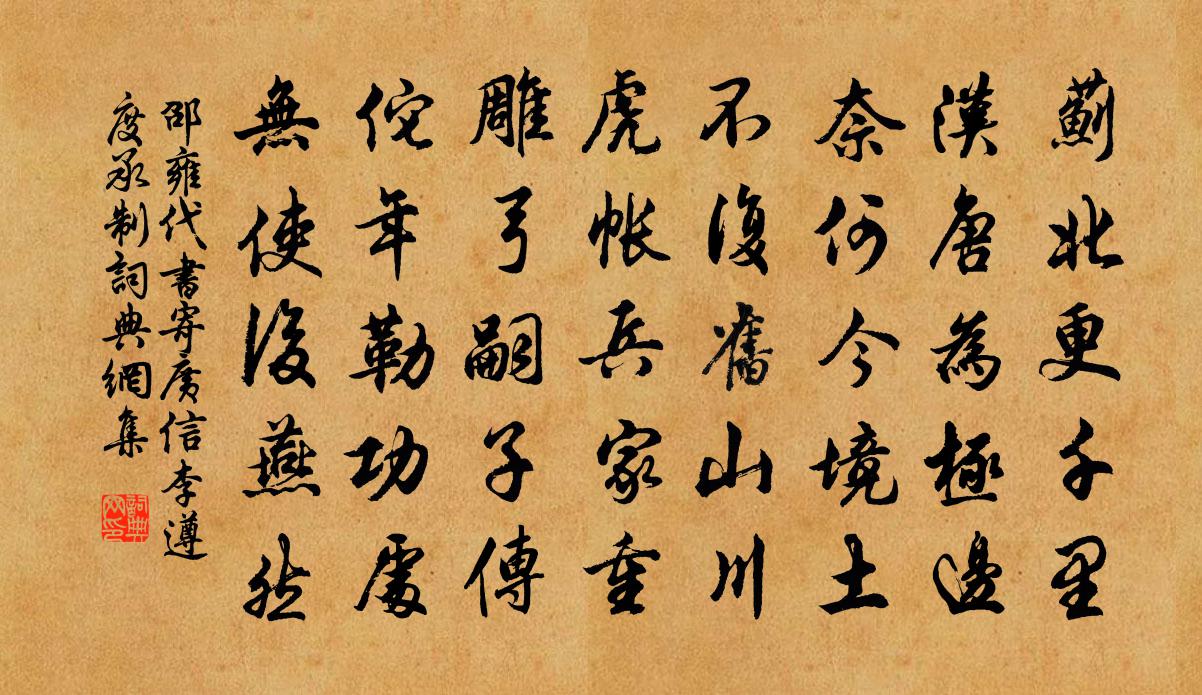 薊北更千里
漢唐為極邊
奈何今境土
不復舊山川
虎帳兵家重
雕弓嗣子傳
佗年勒功處
無使後燕然
邵雍代書寄廣信李遵
度承制詞典網集
詞典
网印